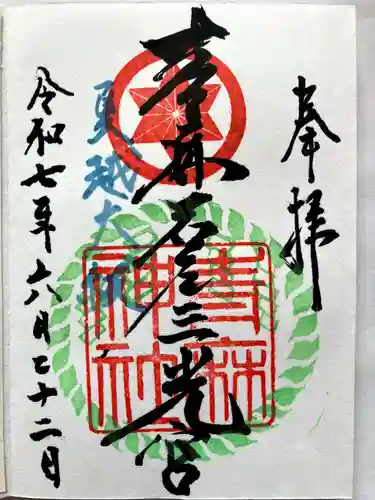 奉拝
青麻岩戸三光宮
夏越大祓
青麻神社
令和七年六月二十二日